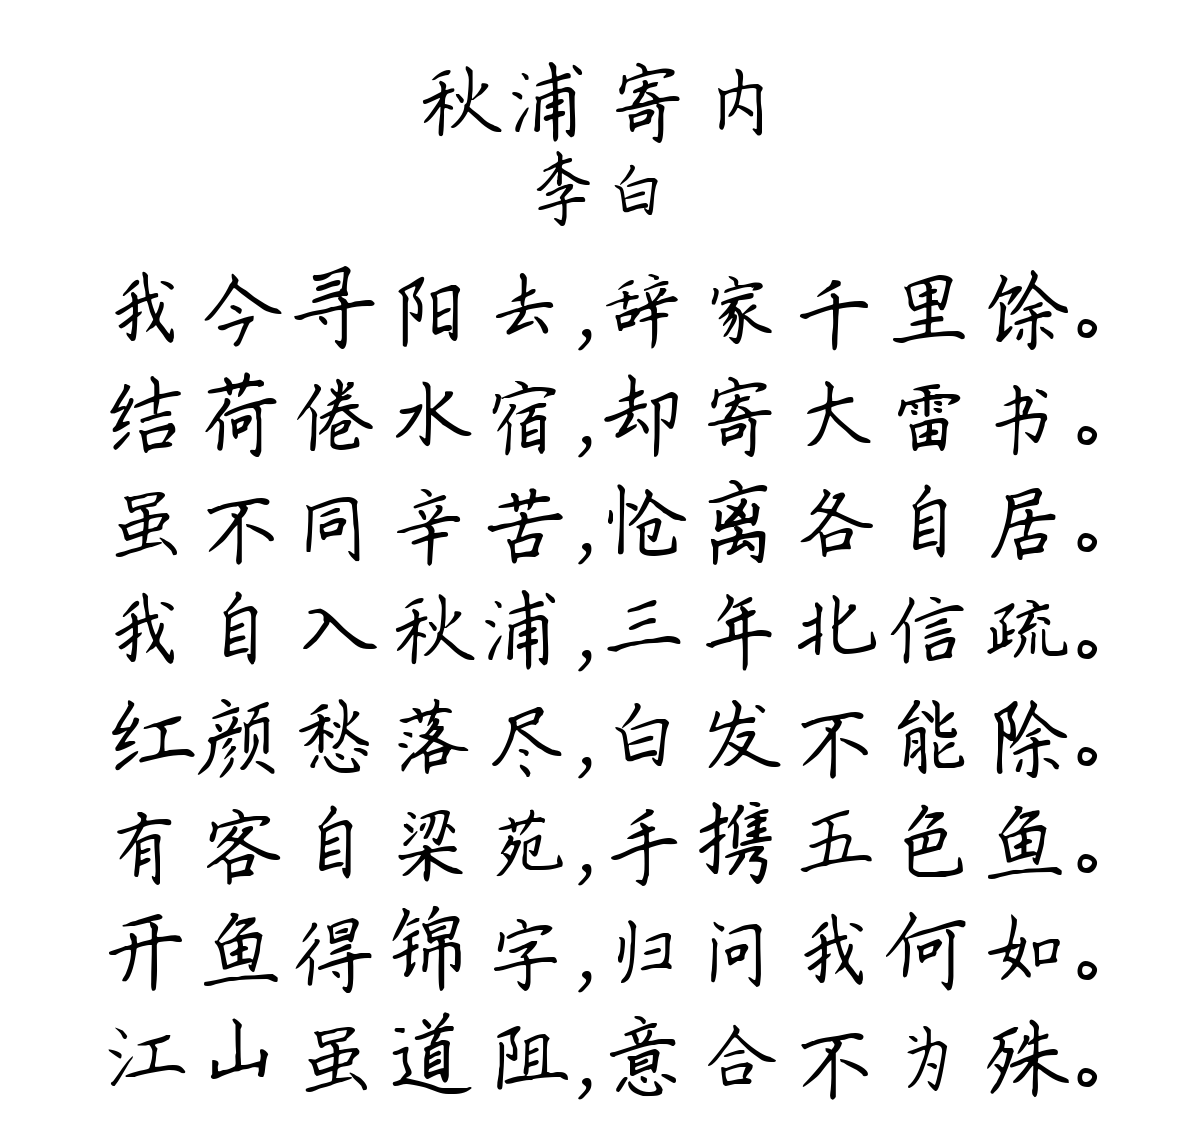 秋浦寄内
李白
我今寻阳去,辞家千里馀。
结荷倦水宿,却寄大雷书。
虽不同辛苦,怆离各自居。
我自入秋浦,三年北信疏。
红颜愁落尽,白发不能除。
有客自梁苑,手携五色鱼。
开鱼得锦字,归问我何如。
江山虽道阻,意合不为殊。